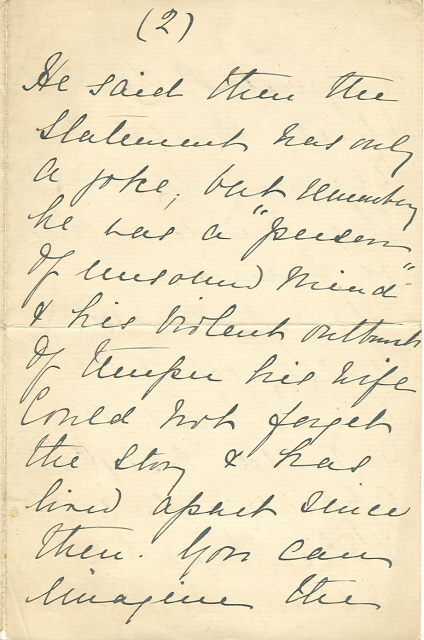 (2)
He said then the
statement was only
a joke, but remembering
he was a "person
of unsound mind"
& his violent outbursts
of temper his wife
could not forget
the story & has
lived apart since
then. You can
imagine the